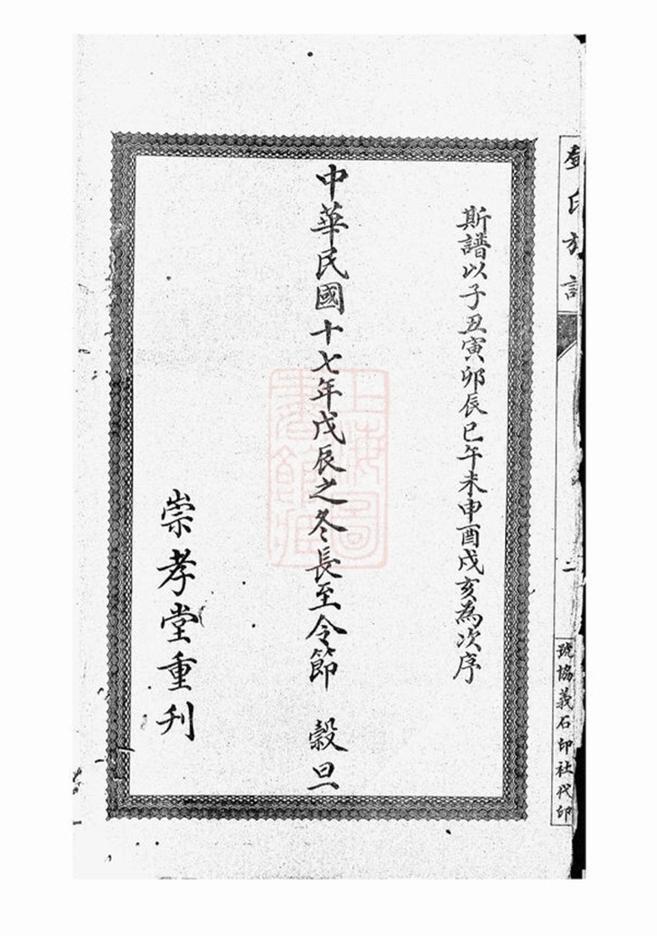 氏族譜
二
號協義石印社代印
斯譜以子丑寅卯辰巳午未申酉戌亥為次序
中華民國十七年戊辰之冬長至令節　穀旦
崇孝堂重刊
上海圖書館藏